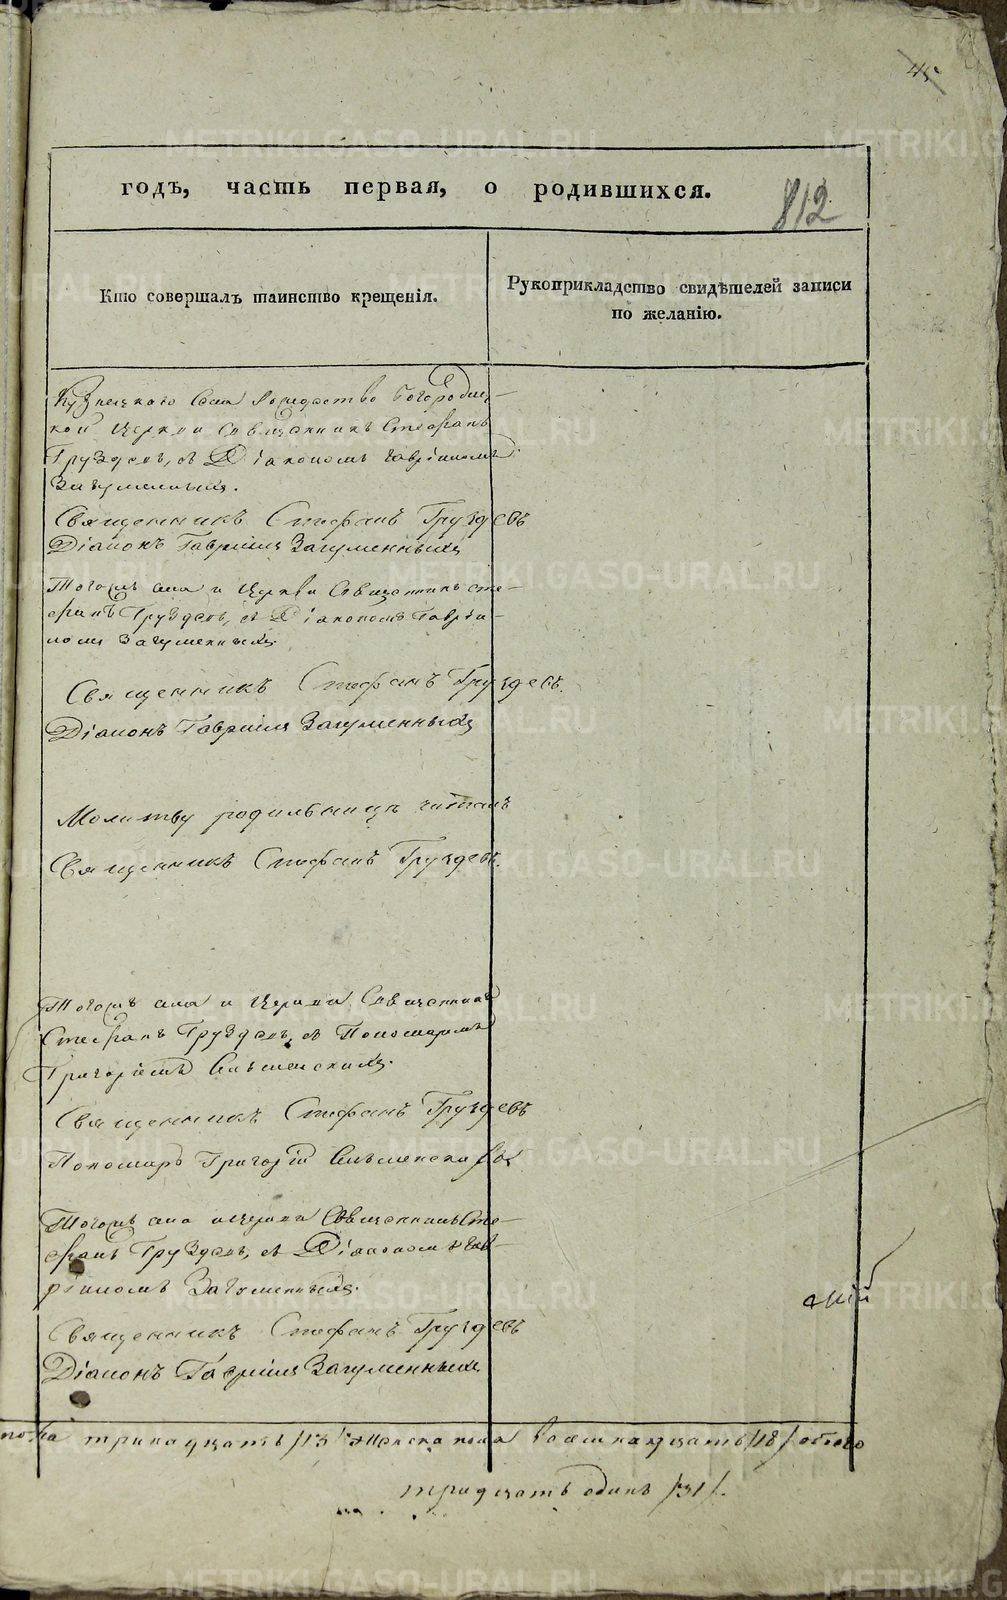 45
годъ, часть первая, о родившихся.
812
Кто совершалъ таинство крещенія.
Рукоприкладство свидѣтелей записи
по желанію.
Кузнецкаго села Рождество Богородиц-
кой церкви Священникъ Стефанъ
Груздевъ, съ Діакономъ Гавріиломъ
Загуменныхъ.
Священникъ Стефанъ Груздевъ
Діаконъ Гавріилъ Загуменныхъ
Тогожъ села и церкви Священникъ Сте-
фанъ Груздевъ, съ Діакономъ Гавріи-
ломъ Загуменныхъ.
Священникъ Стефанъ Груздевъ.
Діаконъ Гавріилъ Загуменныхъ
Молитву родильницѣ читалъ
Священникъ Стефанъ Груздевъ.
Тогожъ села и церкви Священникъ
Стефанъ Груздевъ, съ Пономаремъ
Григоріемъ
Священникъ Стефанъ Груздевъ
Пономарь Григорій
Тогожъ села и церкви Священникъ Сте-
фанъ Груздевъ, съ Діакономъ Гав-
ріиломъ Загуменныхъ.
скій
Священникъ Стефанъ Груздевъ
Діаконъ Гавріилъ Загуменныхъ
пола тринадцать /13/ Женска пола восемнадцать /18/ обоего
тридцать одинъ /31/.
METRIKI.GASO-URAL.RU